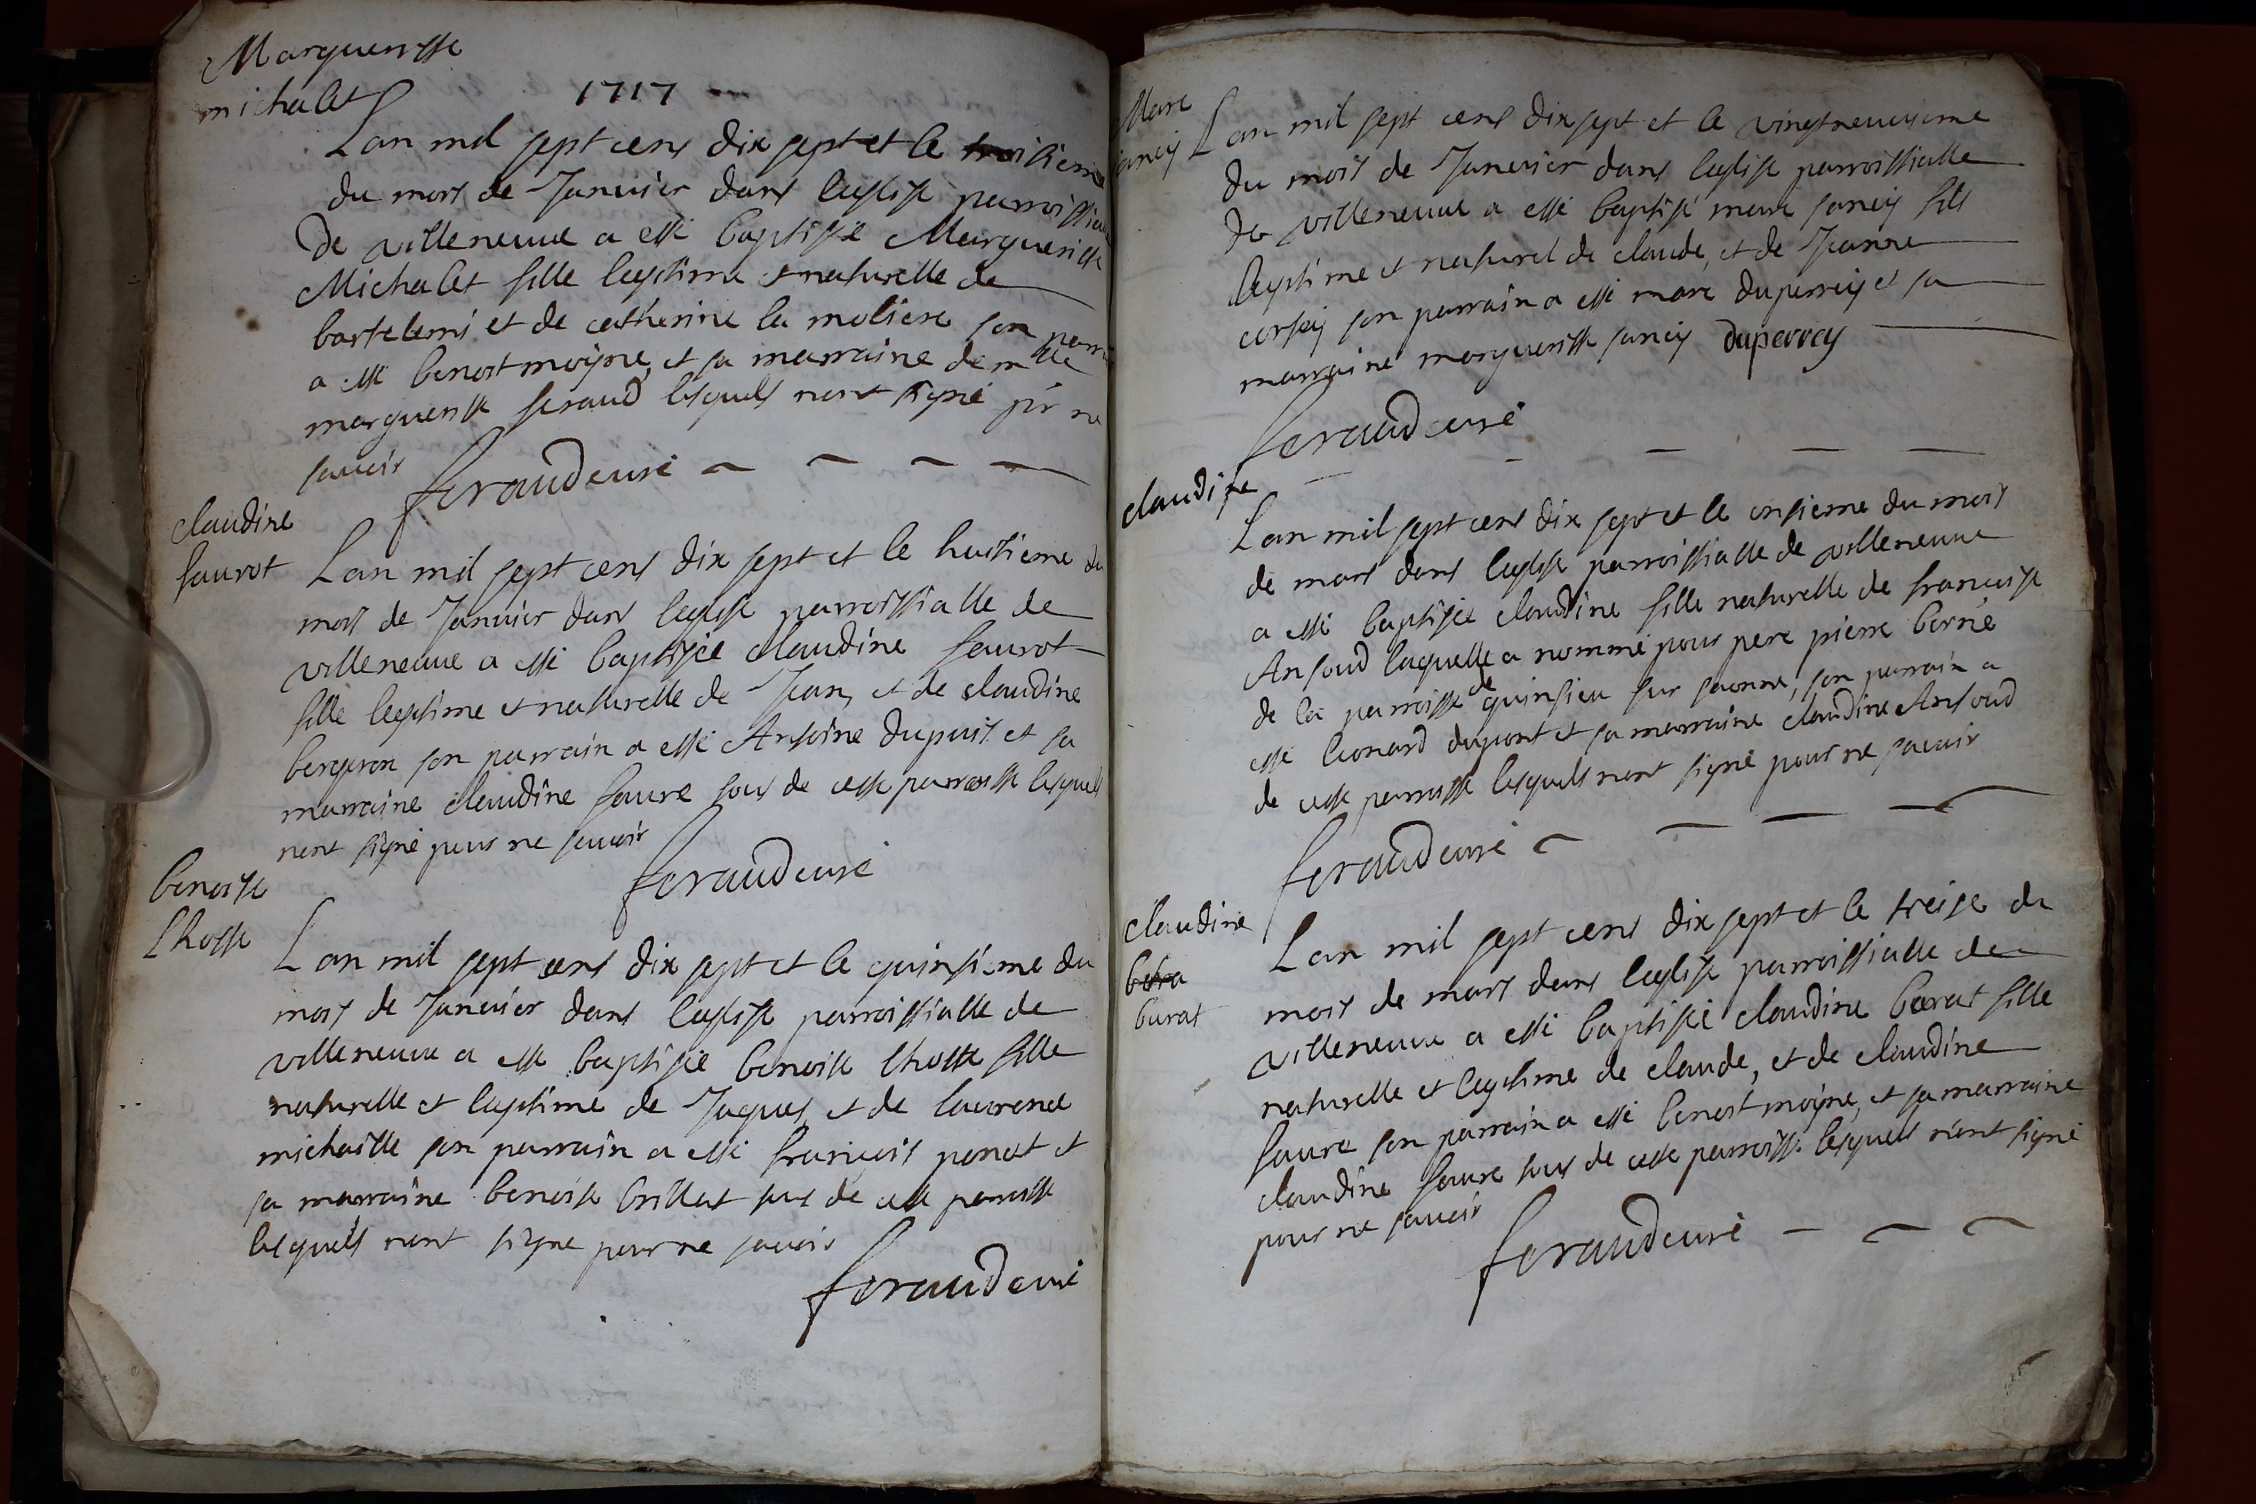 Margueritte
michalet
1717
Lan mil sept cens dix sept et le troisieme
du mois de Janvier dans leglise parroissialle
De villeneuve a esté baptisée Margueritte
Michalet fille legitime et naturelle de
bartelemi et de catherine la moliere son parrain
a esté benoit moyne, et sa marraine demlle
margueritte feraud lesquels nont signé pr ne
scavoir feraud curé
claudine
faurot
Lan mil sept cens dix sept et le huitieme du
mois de Janvier dans leglise parroissialle de
villeneuve a esté baptisée claudine faurot
fille legitime et naturelle de Jean, et de claudine
bergeron son parrain a esté Antoine dupuit et sa
marraine claudine faure tous de cette parroisse lesquels
nont signé pour ne scavoir
feraud curé
benoiste
Lhoste
Lan mil sept cens dix sept et le quinsieme du
mois de Janvier dans leglise parroissialle de
villeneuve a esté baptisée benoiste lhoste fille
naturelle et legitime de Jaques, et de laurence
michaille son parrain a esté francois ponat et
sa marraine benoiste brillat tous de cette parroisse
lesquels nont signe pour ne scavoir
feraud curé
Marc
jancy
Lan mil sept cens dix sept et le vingtneuvieme
du mois de Janvier dans leglise parroissialle
de villeneuve a esté baptisé marc jancy fils
legitime et naturel de claude, et de Jeanne
son parrain a esté marc duperrey et sa
marraine margueritte jancy duperrey
feraud curé
claudine
Lan mil sept cens dix sept et le onsieme du mois
de mars dans leglise parroissialle de villeneuve
a esté baptisée claudine fille naturelle de francoise
Ansoud laquelle a nommé pour pere pierre berné
de la parroisse de quinsieu sur saonne, son parrain a
esté leonard dupont et sa marraine claudine Ansoud
de cette parroisse lesquels nont signé pour ne scavoir
feraud curé
claudine
bera
burat
Lan mil sept cens dix sept et le treise du
mois de mars dans leglise parroissialle de
villeneuve a esté baptisée claudine barat fille
naturelle et legitime de claude, et de claudine
faure son parrain a esté benoit moyne, et sa marraine
claudine faure tous de cette parroisse lesquels n'ont signé
pour ne scavoir
feraud curé